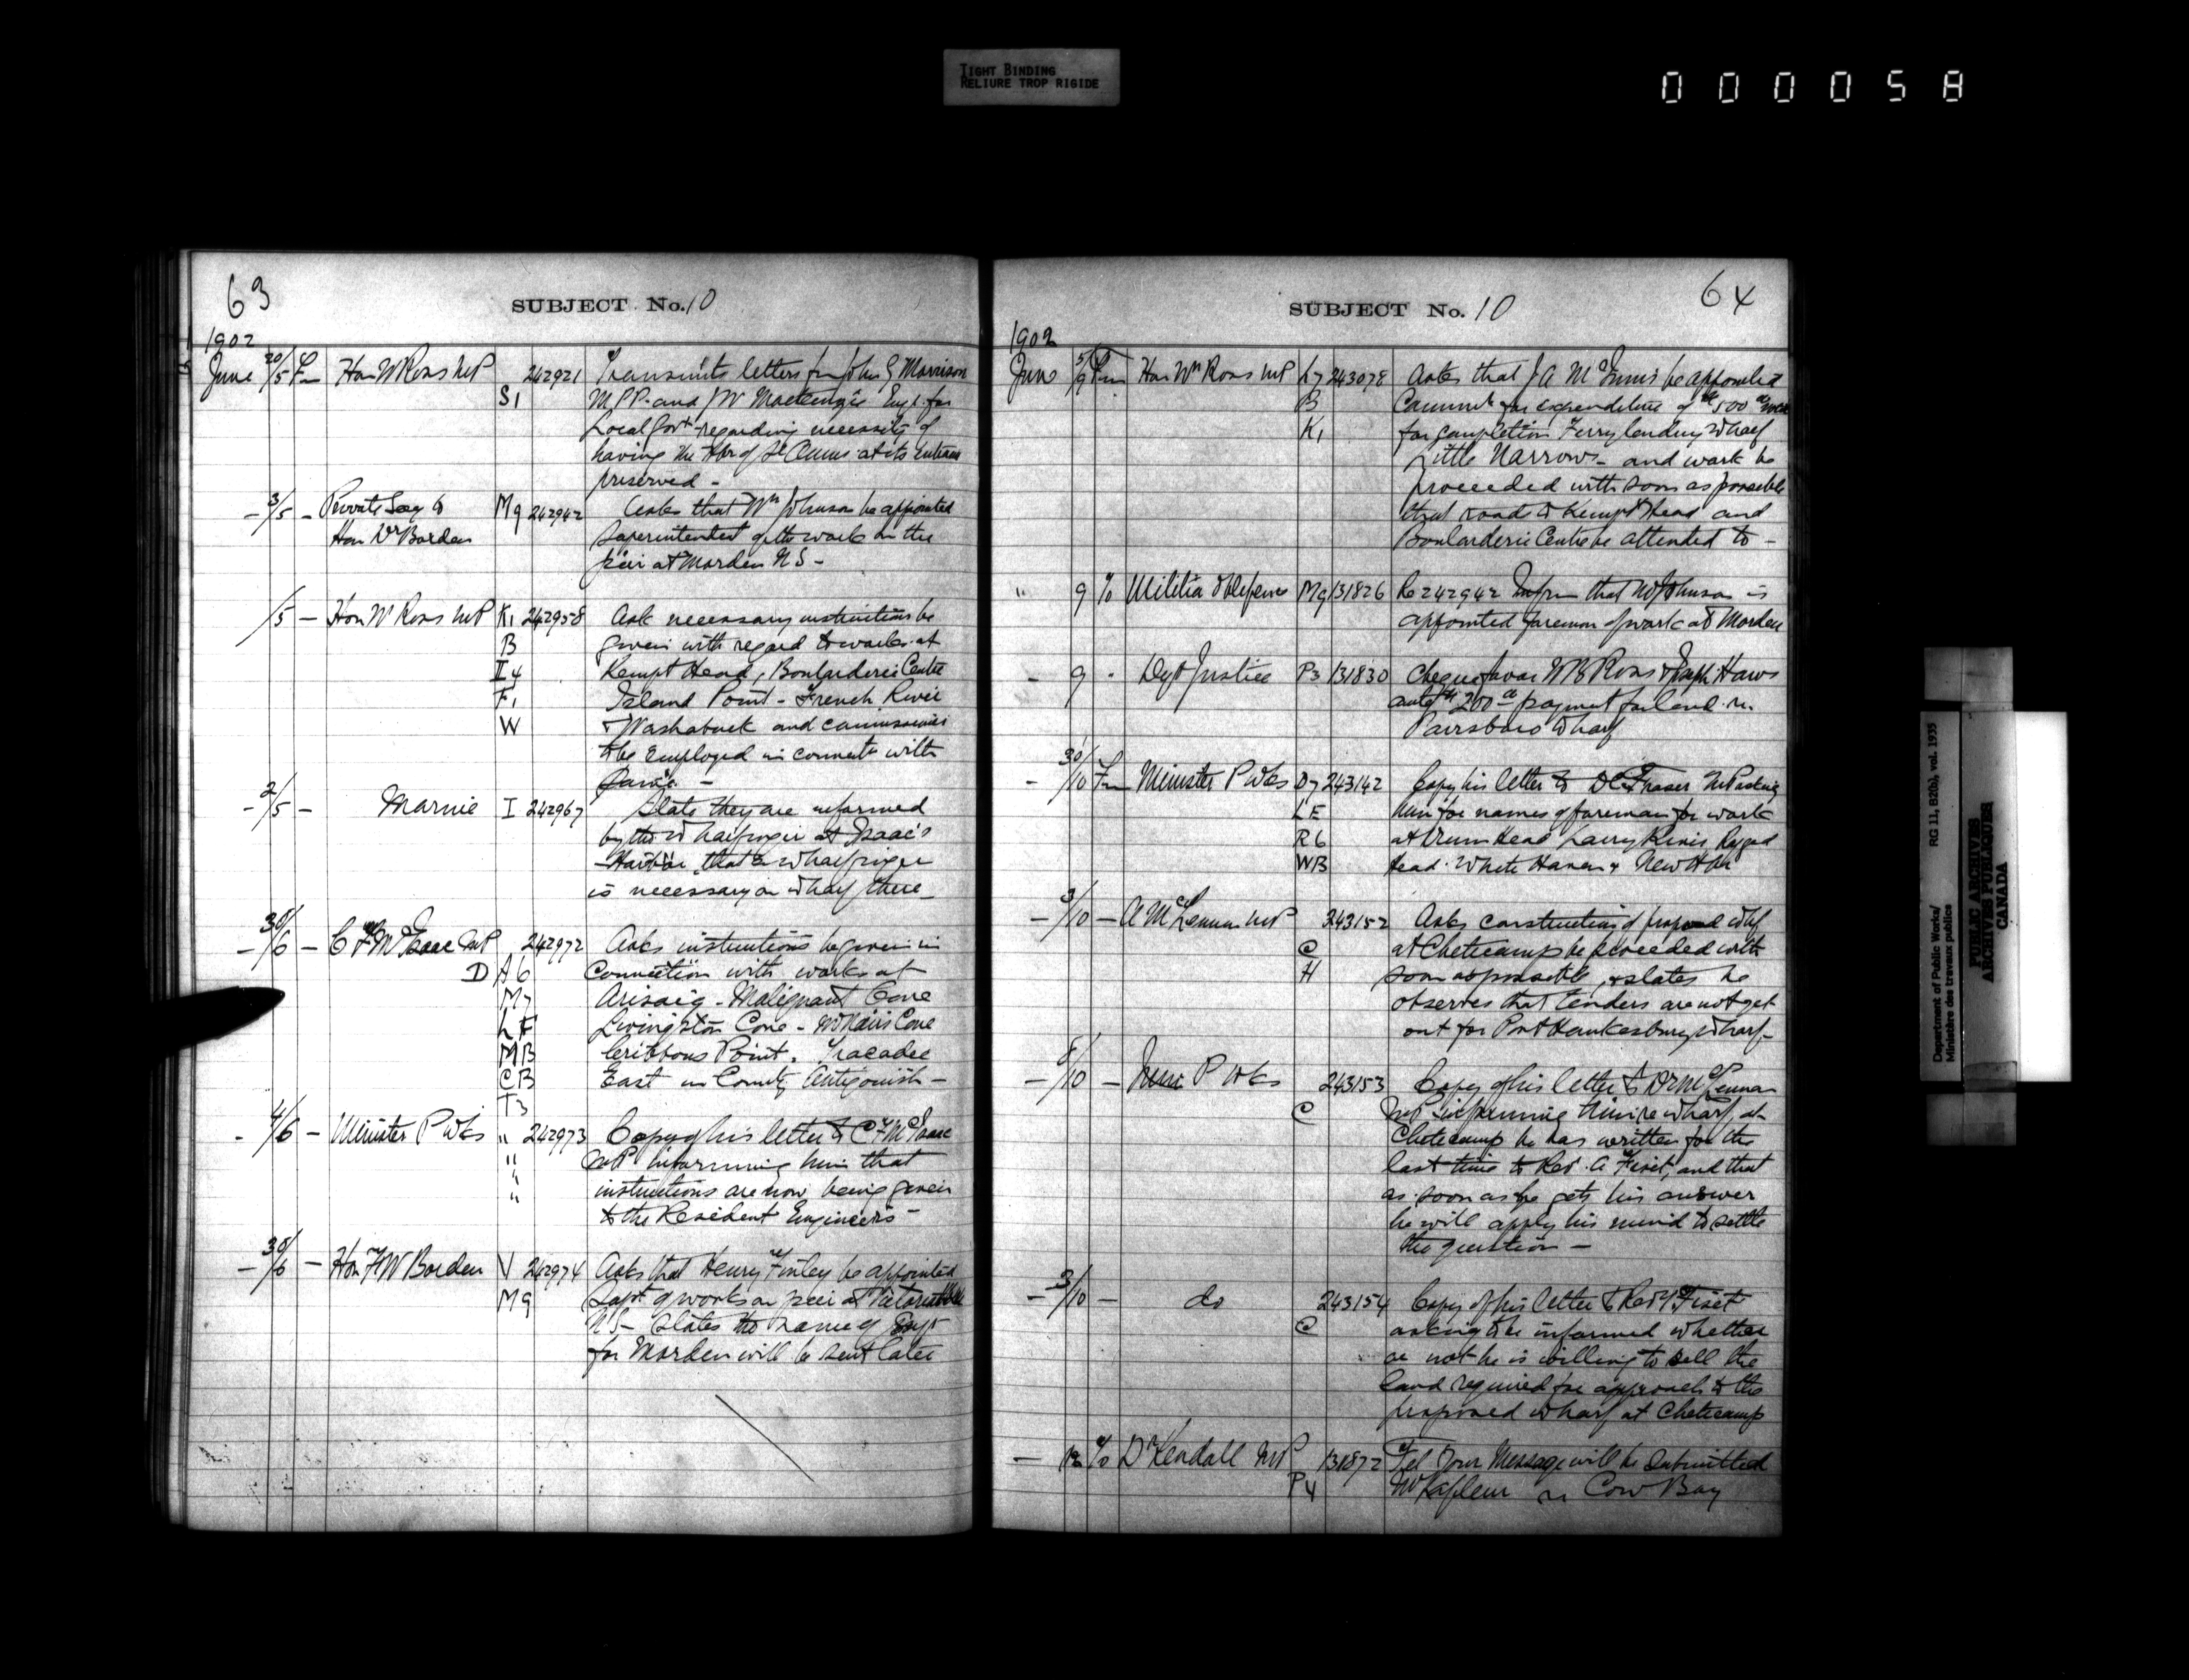 TIGHT BINDING
RELIURE TROP RIGIDE
000058
63
SUBJECT No. 10
1902
June 20/5 Fm Hon W Ross MP 242921 Transmits letters fm John G Morrison
S1 MPP and J W Mackenzie Engr for
Local Govt regarding necessity of
having the Hbr of St Anns at its entrance
preserved -
- 3/5 - Private Secy to M9 242942 Asks that Wm Johnson be appointed
Hon Dr Borden Superintendent of the work on the
pier at Morden N S -
/5 - Hon W Ross MP K1 242958 Ask necessary instructions be
B given with regard to works at
I4 Kempt Head, Boularderie Centre
F1 Island Point - French River
W + Washabuck and commissioners
to be employed in connectn with
same -
- 2/5 - Marine I 242967 State they are informed
by the wharfinger at Isaac's
Harbor that a wharfinger
is necessary on wharf there -
- 30/6 - C F McIsaac MP 242972 Asks instructions be given in
D A6 connection with works at
M7 Arisaig - Malignant Cove
LF Livingston Cove - McNairs Cove
MB Cribbons Point. Tracadie
CB East in County Antigonish -
T3
- 4/6 - Minister P Wks " 242973 Copy of his letter to C F McIsaac
" MP informing him that
" instructions are now being given
" to the Resident Engineers -
- 30/6 - Hon F W Borden V 242974 Asks that Henry Finley be appointed
M9 Supt of works on pier at Victoria
N S - States the name of Supt
for Morden will be sent later
64
SUBJECT No. 10
1902
June 5/9 Fm Hon Wm Ross MP L7 243078 Asks that J A McInnis be appointed
B Commr for expenditure of $500
K1 for completion Ferry landing wharf
Little Narrows - and work be
proceeded with soon as possible
that roads to Kempt Head and
Boularderie Centre be attended to -
" 9 To Militia & Defence M9 131826 Re 242942 Inform that W Johnson is
appointed foreman of work at Morden
- 9 " Dept Justice P3 131830 Cheque favor W B Ross & Joseph Haws
amtg $200 payment for land re
Parrsboro Wharf
- 30/10 Fm Minister P Wks D7 243142 Copy his letter to D C Fraser MP asking
LE him for names of foreman for work
R6 at Drum Head Larrys River Ragged
WB Head. White Haven & New Hbr
- 3/10 - A McLennan MP 243152 Asks construction of proposed whf
C at Cheticamp be proceeded with
H soon as possible, & states he
observes that tenders are not yet
out for Port Hawkesbury Wharf -
- 5/10 - Minr P Wks 243153 Copy of his letter to Dr McLennan
C MP informing him re wharf at
Cheticamp he has written for the
last time to Rev. A Fiset, and that
as soon as he gets his answer
he will apply his mind to settle
the question -
- 3/10 - do 243154 Copy of his letter to Rev Fiset
C asking to be informed whether
or not he is willing to sell the
land required for approach to the
proposed wharf at Cheticamp
- 12 To Dr Kendall MP 131872 Tel Your Message will be submitted
P4 Mr Lafleur re Cow Bay
Department of Public Works/ RG 11, B2(b), vol. 1935
Ministère des travaux publics
PUBLIC ARCHIVES
ARCHIVES PUBLIQUES
CANADA